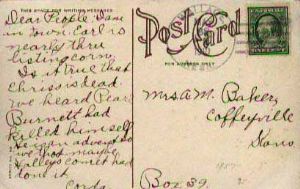 THIS SPACE FOR WRITING MESSAGES
Dear People I am
in town. Earl is
nearly thru
listing corn.
Is it true that
Chris is dead.
we heard Pearl
Burnett had
killed himself
he is an advent so
we that maybe
Halleys comet had
done it
Corda
Post Card
FOR ADDRESS ONLY
Mrs A. M. Baker,
Coffeyville
Kans
Box 39.